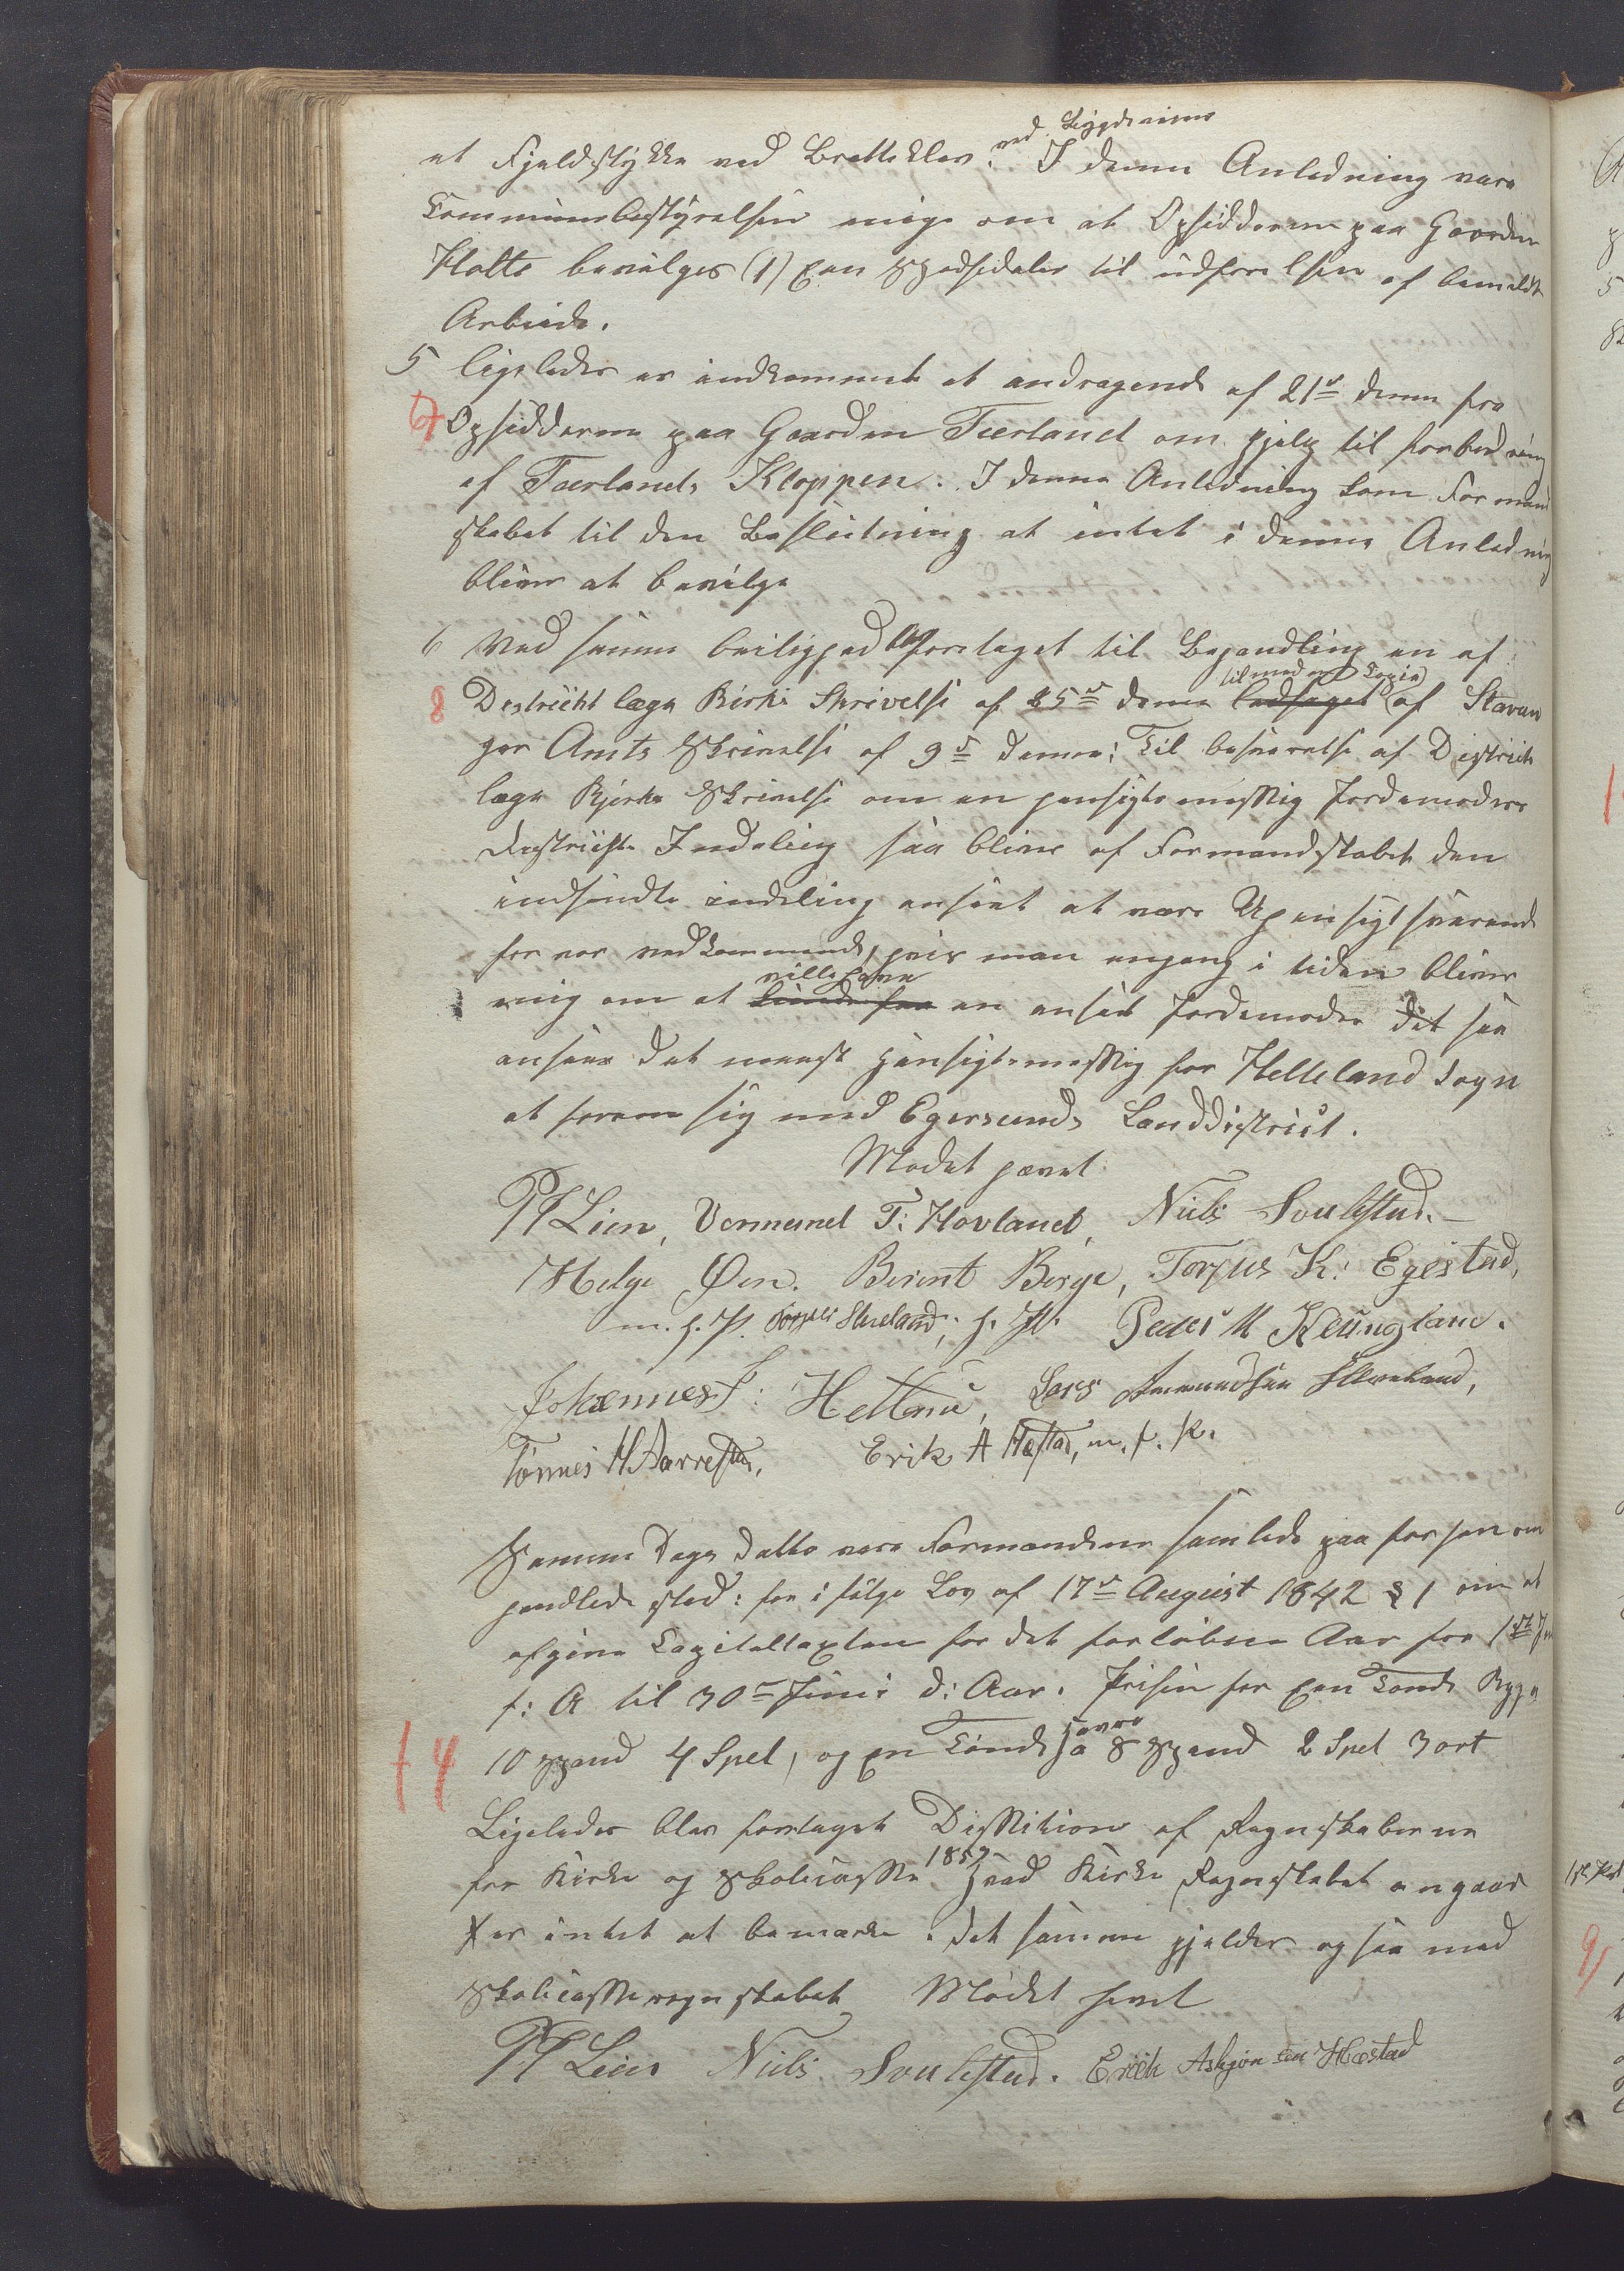 ved Bygdeveien
et Fjeldstykke ved Bratteklev. I denne Anledning vare
Communebestyrelsen enige om at Opsidderne paa Gaarden
Hatte bevilges (1) een Spesidaler til udførelsen af bemeldte
Arbeide.
5 ligeledes er indkommet et andragende af 21de denne fra
7 Opsidderne paa Gaarden Tærland om hjelp til forbedring
af Tærlands Kloppen. I denne Anledning kom Formand
skabet til den Beslutning at intet i denne Anledning
bliver at bevilge
6 Ved samme leilighed blev foretaget til Behandling en af
tilmed en Copie
8 Destricht læge Birks Skrivelse af 25de denne ledsaget af Stavan
ger Amts Skrivelse af 9de denne: Til besvarelse af Districts
læge Bjerks Skrivelse om en hensigtsmæssig Jordemoders
Destrichts Inddeling saa bliver af Formandskabet den
indsendte inddeling anseet at være Uhensigtsvarende
for vor vedkommende, hvis man engang i tiden bliver
ville have
enig om at kunde faa en ansat Jordemoder dit saa
ansees det meest hensigtsmessig for Helleland Sogn
at forene sig med Egersunds Landdistrict.
Mødet hævet
P Lien, Vermund T: Hovland, Niels Soulestad.
Helge Øen. Berent Berge, Torjus K: Egestad,
m. h. P. Skreland, h. P. Peder M Keungland.
Johannes J: Hetland, Lars Amundsen Skreland,
Tønnes H Aarrestad, Erik A Hæstad, m. f. P.
Samme Dags datto vare Formændene samlede paa for hen om
handlede sted: for i følge Lov af 17de August 1842 § 1 om at
afgive Capitaltaxten for det forløbne Aar fra 1ste Juli
f: A til 30te Juni d: Aar. Prisen for een Tønde Bygg
havre
14 10 spand 4 Spel, og en Tønde ha 8 Spand 2 Spel 3 ort
Ligeledes blev foretaget Dissition af Regnskaberne
1859
for Kirke og Skolecassen Hvad Kirke Regnskabet angaar
er intet at bemærke. det samme gjelder og saa med
Skolecasseregnskabet Mødet hevet
P Lien Niels Soulestad. Erik Askjon sen Hæstad